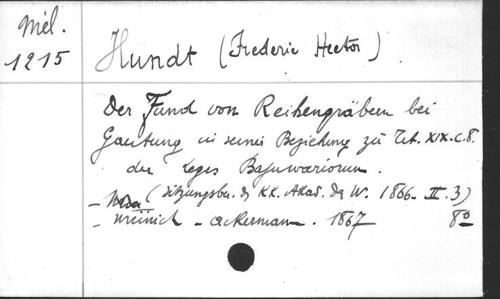 Mél.
1215
Hundt (Frederic Hector)
Der Fund von Reihengräbern bei
Gauting in seiner Beziehung zu Tit. XIX. c. 8.
der Leges Bajuwariorum.
(Sitzungsber. d. KK. Akad. d. W. 1866. II. 3)
- Münich - Ackermann. 1867 8°